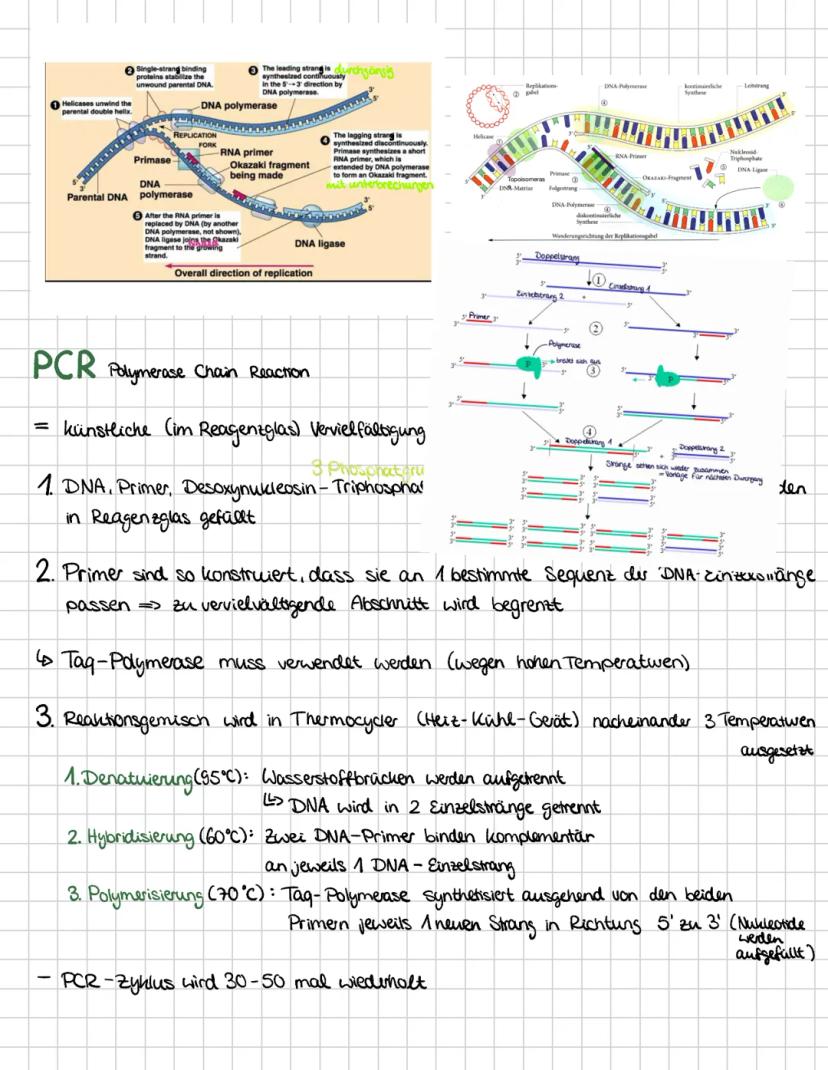 ② Single-strang binding
proteins stabilize the
unwound parental DNA.
③ The leading strang is durchgängig
synthesized continuously
in the 5'→3' direction by
DNA polymerase.
① Helicases unwind the
parental double helix.
DNA polymerase
3'
5'
REPLICATION
FORK
④ The lagging strang is
synthesized discontinuously.
Primase synthesizes a short
RNA primer, which is
extended by DNA polymerase
to form an Okazaki fragment.
mit unterbrechungen
RNA primer
Primase
Okazaki fragment
being made
5'
3'
Parental DNA
DNA
polymerase
3'
5'
⑤ After the RNA primer is
replaced by DNA (by another
DNA polymerase, not shown),
DNA ligase joins the Okazaki
fragment to the growing
strand.
DNA ligase
Overall direction of replication
Replikations-
gabel
②
DNA-Polymerase
④
kontinuierliche
Synthese
Leitstrang
Helicase
①
RNA-Primer
Nukleosid-
Triphosphate
⑤
Topoisomeras
DNA-Matrize
Primase
③
Folgestrang
OKAZAKI-Fragment
DNA-Ligase
⑥
DNA-Polymerase
④
diskontinuierliche
Synthese
Wanderungsrichtung der Replikationsgabel
Doppelstrang
①
Einzelstrang 1
Einzelstrang 2 +
Primer
②
Polymerase
P → breitet sich aus
③
P
④
Doppelstrang 1
+ Doppelstrang 2
Stränge setzen sich wieder zusammen
= Vorlage für nächsten Durchgang
PCR Polymerase Chain Reaction
= künstliche (im Reagenzglas) Vervielfältigung
3 Phosphatgru
1. DNA, Primer, Desoxynukleosin-Triphosphat den
in Reagenzglas gefüllt
2. Primer sind so konstruiert, dass sie an 1 bestimmte Sequenz der DNA-
passen => zu vervielvältigende Abschnitt wird begrenzt
↳ Taq-Polymerase muss verwendet werden (wegen hohen Temperaturen)
3. Reaktionsgemisch wird in Thermocycler (Heiz-Kühl-Gerät) nacheinander 3 Temperaturen
ausgesetzt
1. Denatuierung (95°C): Wasserstoffbrücken werden aufgetrennt
↳ DNA wird in 2 Einzelstränge getrennt
2. Hybridisierung (60°C): Zwei DNA-Primer binden komplementär
an jeweils 1 DNA-Einzelstrang
3. Polymerisierung (70°C): Taq-Polymerase synthetisiert ausgehend von den beiden
Primern jeweils 1 neuen Strang in Richtung 5' zu 3' (Nukleotide
werden
aufgefüllt)
- PCR-Zyklus wird 30-50 mal wiederholt